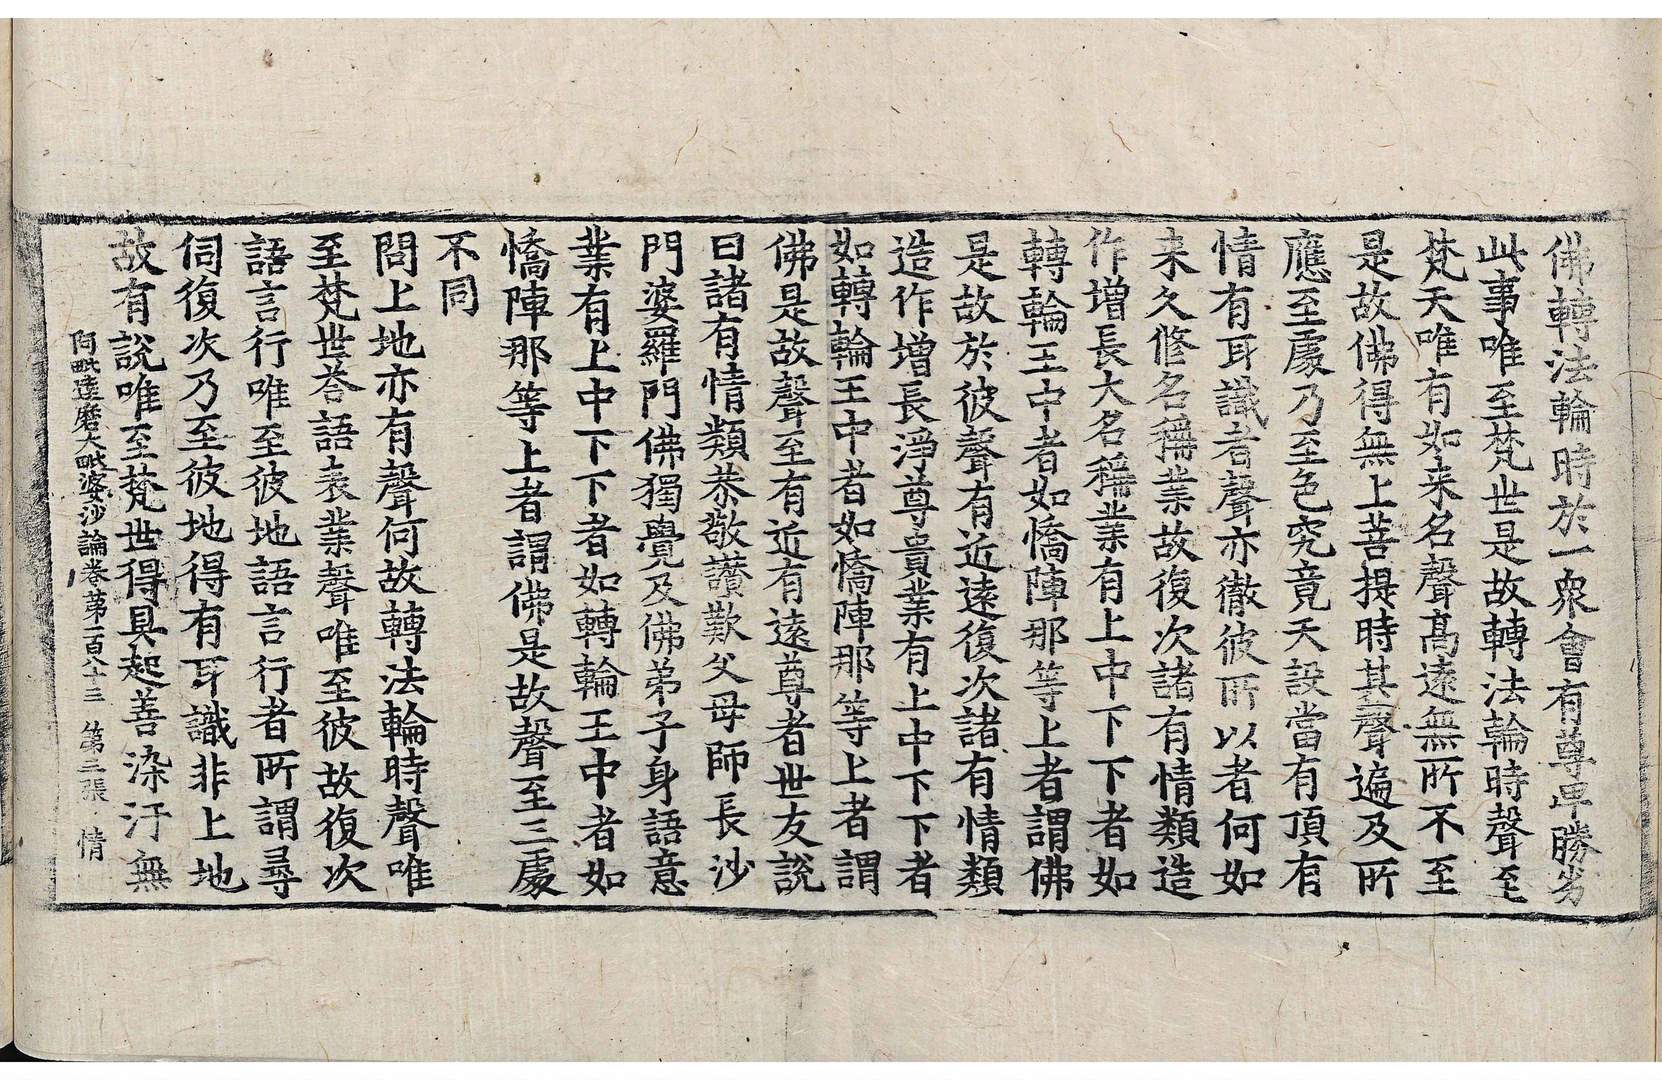 佛轉法輪時於一衆會有尊卑勝劣
此事唯至梵世是故轉法輪時聲至
梵天唯有如来名聲高遠無所不至
是故佛得無上菩提時其聲遍及所
應至處乃至色究竟天設當有頂有
情有耳識者聲亦徹彼所以者何如
来久修名稱業故復次諸有情類造
作增長大名稱業有上中下下者如
轉輪王中者如憍陣那等上者謂佛
是故於彼聲有近遠復次諸有情類
造作增長淨尊貴業有上中下下者
如轉輪王中者如憍陣那等上者謂
佛是故聲至有近有遠尊者世友說
曰諸有情類恭敬讃歎父母師長沙
門婆羅門佛獨覺及佛弟子身語意
業有上中下下者如轉輪王中者如
憍陣那等上者謂佛是故聲至三處
不同
問上地亦有聲何故轉法輪時聲唯
至梵世荅語表業聲唯至彼故復次
語言行唯至彼地語言行者所謂尋
伺復次乃至彼地得有耳識非上地
故有說唯至梵世得具起善染汙無
阿毗達磨大毗婆沙論卷第一百八十三 第三張 情